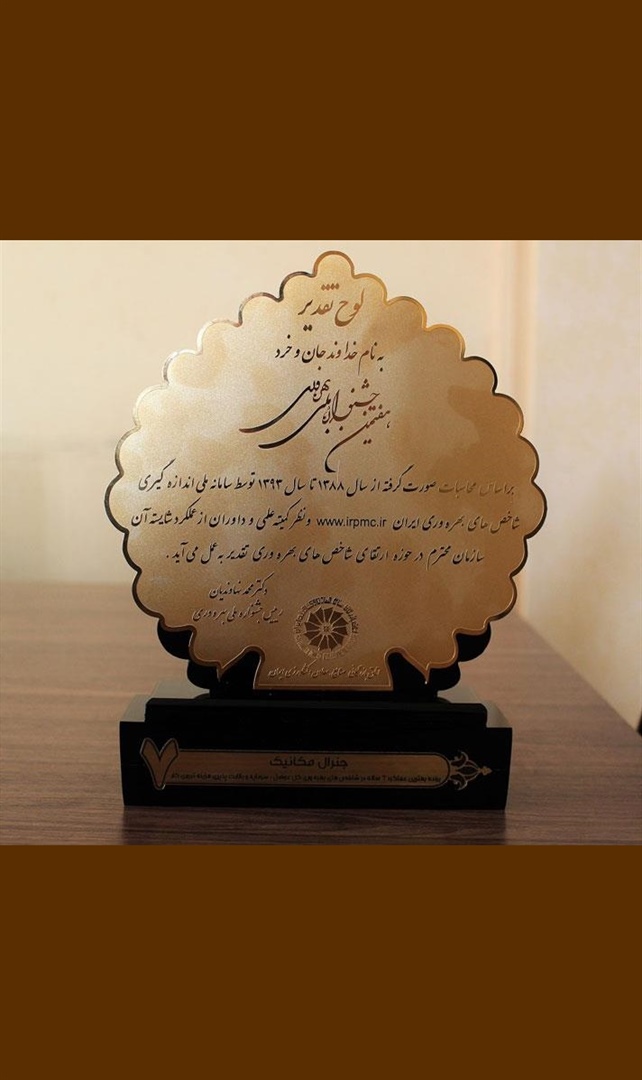 لوح تقدیر
به نام خداوند جان و خرد
هفتمین جشنواره ملی بهره‌وری
براساس محاسبات صورت گرفته از سال ۱۳۸۸ تا سال ۱۳۹۳ توسط سامانه ملی اندازه گیری
شاخص های بهره وری ایران www.irpmc.ir و نظر کمیته علمی و داوران از عملکرد شایسته آن
سازمان محترم در حوزه ارتقای شاخص های بهره وری تقدیر به عمل می آید .
دکتر محمد نهاوندیان
رییس جشنواره ملی بهره وری
اتاق بازرگانی، صنایع، معادن و کشاورزی ایران
۷
جنرال مکانیک